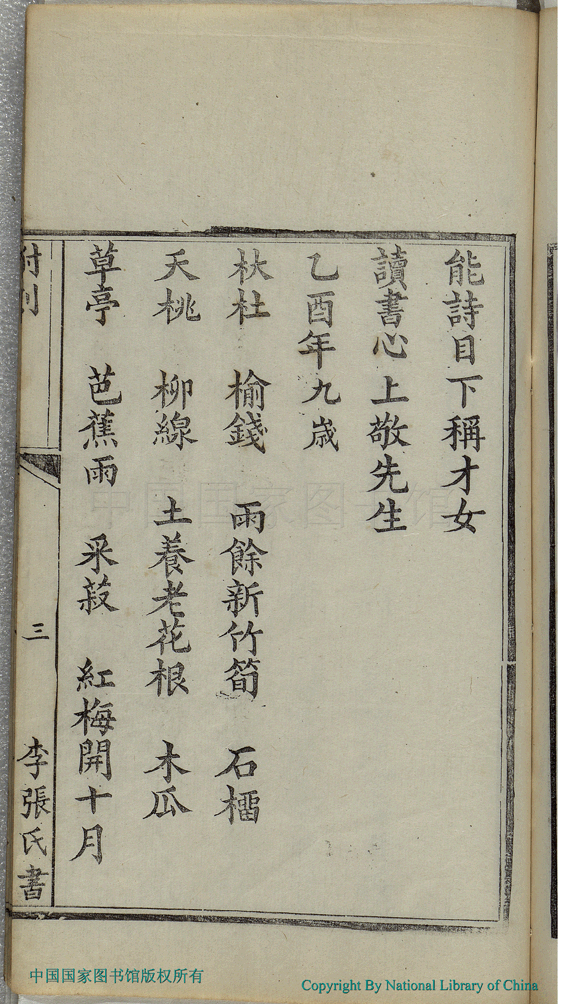 能詩目下稱才女
讀書心上敬先生
乙酉年九歲
杕杜 榆錢 雨餘新竹筍 石橊
夭桃 柳線 土養老花根 木瓜
草亭 芭蕉雨 采菽 紅梅開十月
附刻
三
李張氏書
中国国家图书馆
中国国家图书馆版权所有
Copyright By National Library of China